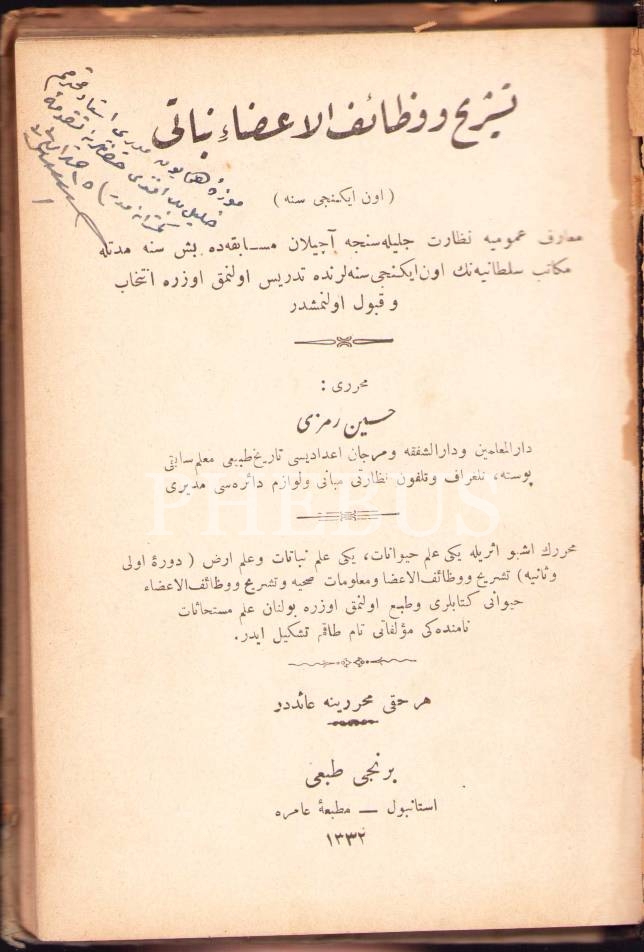 تشريح ووظائف الاعضاء نباتی
( اون ايكنجی سنه )
معارف عموميه نظارت جليله‌سنجه آچيلان مسابقه‌ده بش سنه مدتله
مكاتب سلطانيه‌نك اون ايكنجی سنه‌لرنده تدريس اولنمق اوزره انتخاب
و قبول اولنمشدر
محرری :
حسين رمزی
دارالمعلمين ودارالشفقه ومرجان اعداديسی تاريخ طبيعی معلم سابقی
پوسته، تلغراف وتلفون نظارتی مبانی ولوازم دائره‌سی مديری
محررك اشبو اثريله يكی علم حيوانات، يكی علم نباتات وعلم ارض ( دورۀ اولی
وثانيه ) تشريح ووظائف الاعضا ومعلومات صحيه وتشريح ووظائف الاعضاء
حيوانی كتابلری وطبع اولنمق اوزره بولنان علم مستحاثات
نامنده‌كی مؤلفاتی تام طاقم تشكيل ايدر.
هر حقی محررينه عائددر
برنجی طبعی
استانبول — مطبعۀ عامره
١٣٣٢
موزۀ همايون مدری استاد محترم
خليل بك افندی حضرتلرينه تقدمۀ
PHEBUS